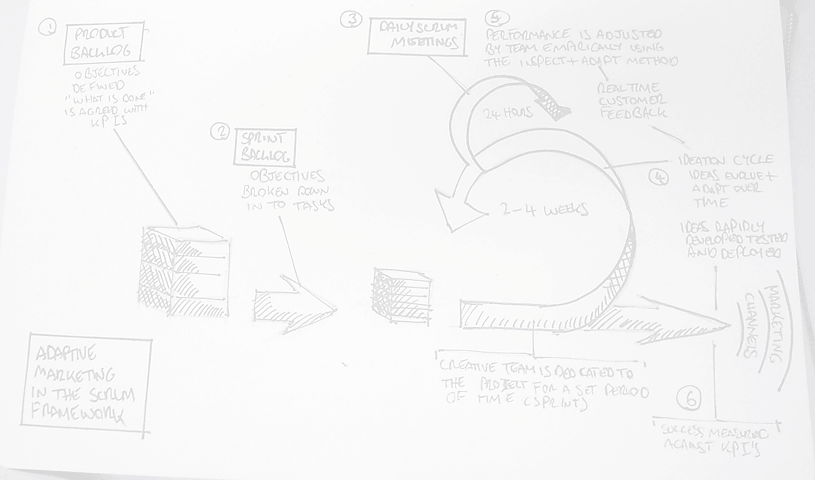 1
PRODUCT
BACKLOG
OBJECTIVES
DEFINED
"WHAT IS DONE"
IS AGREED WITH
KPIS
2
SPRINT
BACKLOG
OBJECTIVES
BROKEN DOWN
IN TO TASKS
3
DAILY SCRUM
MEETINGS
24 HOURS
2-4 WEEKS
5
PERFORMANCE IS ADJUSTED
BY TEAM EMPIRICALLY USING
THE INSPECT + ADAPT METHOD
REAL TIME
CUSTOMER
FEEDBACK
4
IDEATION CYCLE
IDEAS EVOLVE +
ADAPT OVER
TIME
IDEAS RAPIDLY
DEVELOPED TESTED
AND DEPLOYED
MARKETING
CHANNELS
CREATIVE TEAM IS DEDICATED TO
THE PROJECT FOR A SET PERIOD
OF TIME (SPRINT)
6
SUCCESS MEASURED
AGAINST KPI'S
ADAPTIVE
MARKETING
IN THE SCRUM
FRAMEWORK